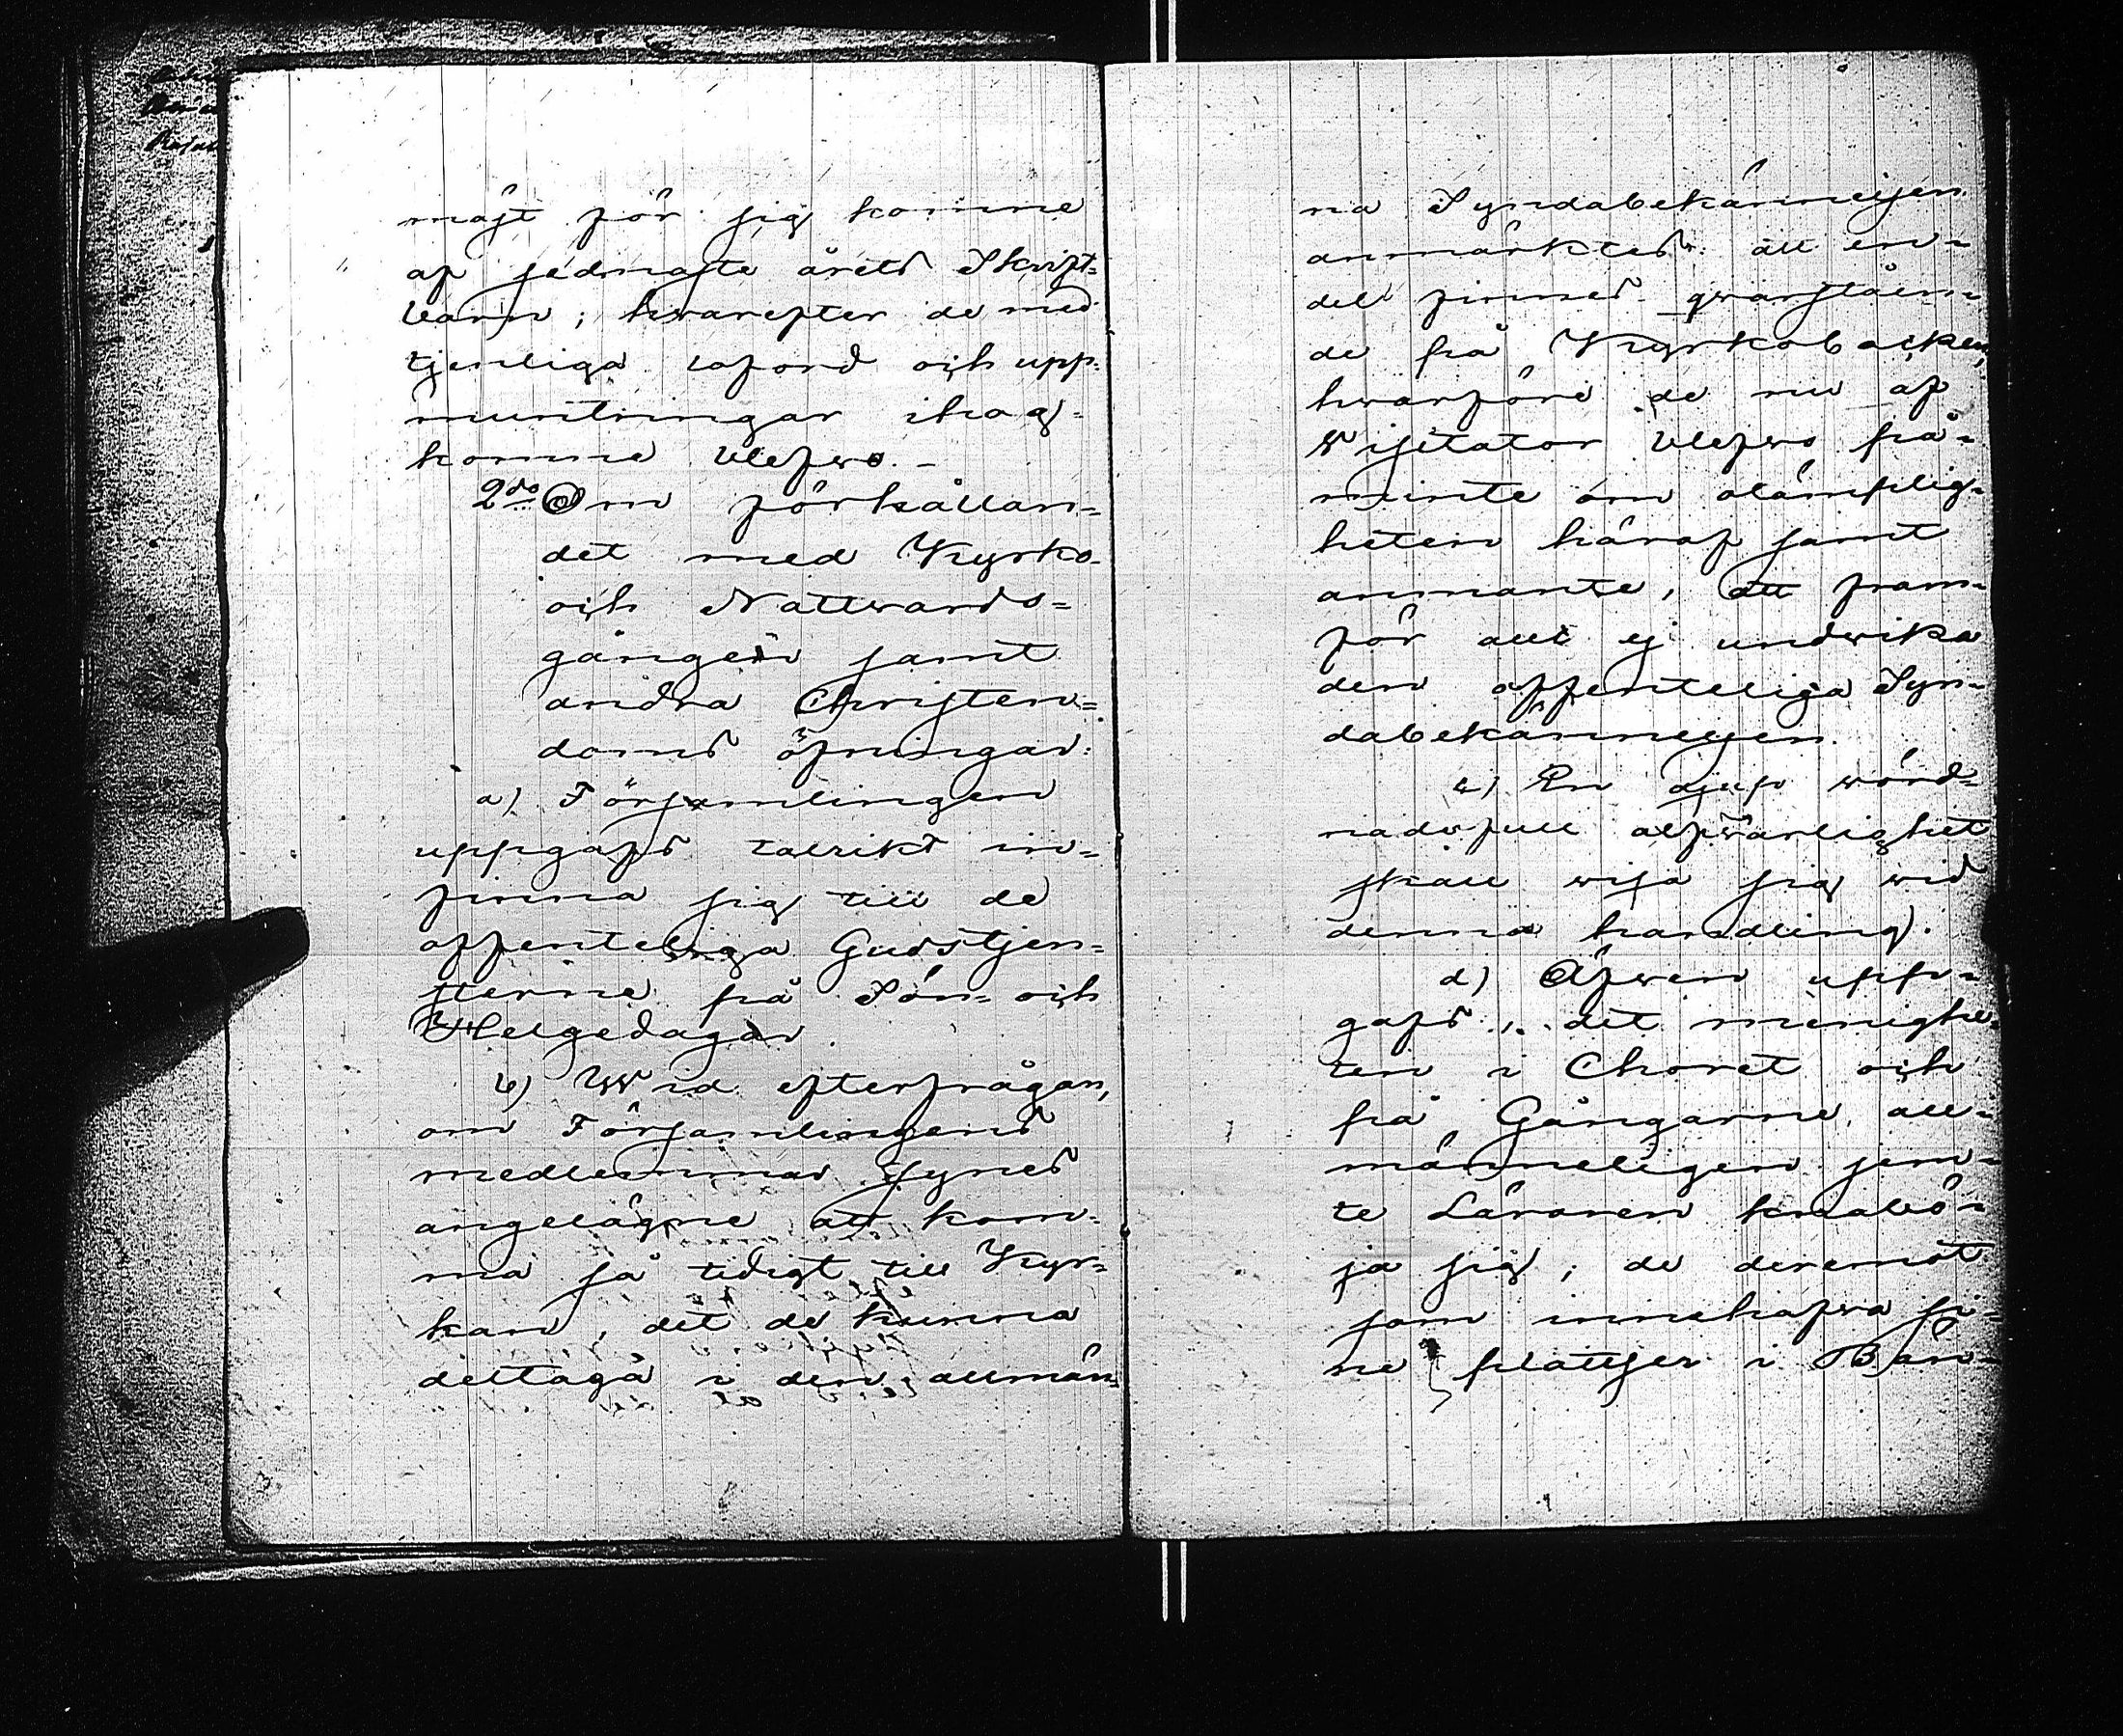 mäst för sig komne
af sednaste årets Skrift-
barn; hvarefter de med
tjenliga loford och upp-
muntringar ihog-
komne blefvo. -
2do Om förhållan-
det med Kyrko-
och Nattwards-
gången samt
andra Christen-
doms öfningar:
a) Församlingen
uppgafs talrikt in-
finna sig till de
offenteliga Gudstjen-
sterne på Sön- och
Helgedagar.
b) Wid efterfrågan,
om Församlingens
medlemmar synes
angelägne att kom-
ma så tidigt till Kyr-
kan, det de kunna
deltaga i den allmän-
na Syndabekännelsen
anmärktes: att en-
del finnes qwarståen-
de på Kyrkobacken,
hvarföre de nu af
Visitator blefvo på-
minte om olämplig-
heten häraf samt
anmante, att fram-
för allt ej undvika
den offenteliga Syn-
dabekännelsen.
c) En djup wörd-
nadsfull alfwarlighet
skall wisa sig wid
denna handling.
d) Äfwen upp-
gafs, det menighe-
ten i Choret och
på Gångarne all-
männeligen jem-
te Läraren knäbö-
ja sig; de deremot
som innehafva si-
ne platser i Bän-